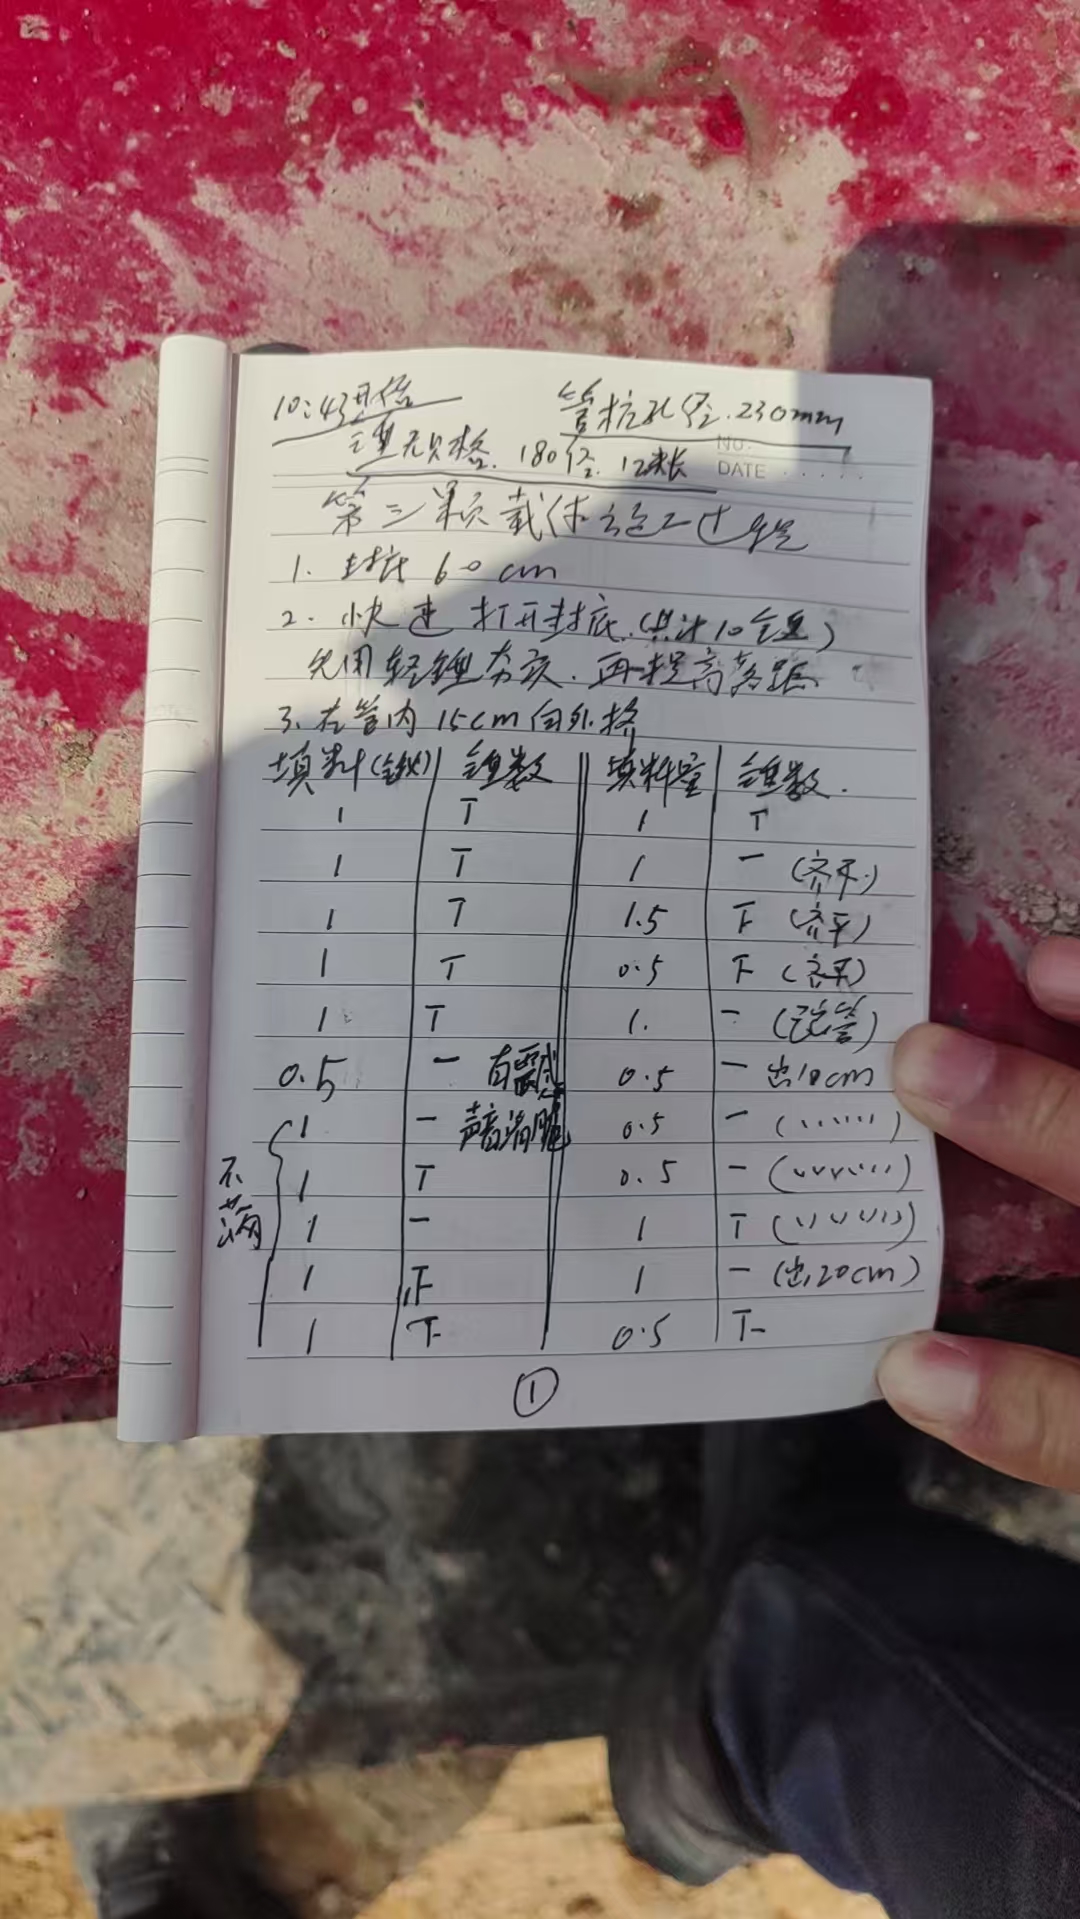 10:43开始 管桩孔径.230mm
No.
锤规格.180径.12米长
DATE
第三颗载体施工过程
1. 封底60cm
2. 快速打开封底.(共计10锤)
先用轻锤夯实.再提高落距
3. 在管内15cm向外挤
填料(锹) 锤数 填料量 锤数.
1 T 1 T
1 T 1 一 (齐平)
1 T 1.5 下 (齐平)
1 T 0.5 下 (齐平)
1 T 1. 一 (管)
0.5 一 有震感 0.5 一 出10cm
1 一 声音清脆 0.5 一 (、、、、、、)
不满
1 T 0.5 一 (、、、、、、、)
1 一 1 T (、、、、、、)
1 正 1 一 (出20cm)
1 下 0.5 下
①